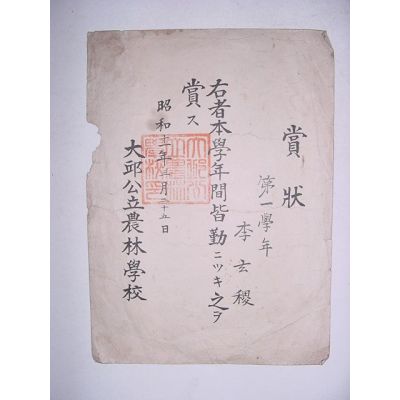 賞狀
第一學年
李玄稷
右者本學年間皆勤ニツキ之ヲ
賞ス
昭和十二年三月二十五日
大邱公立農林學校